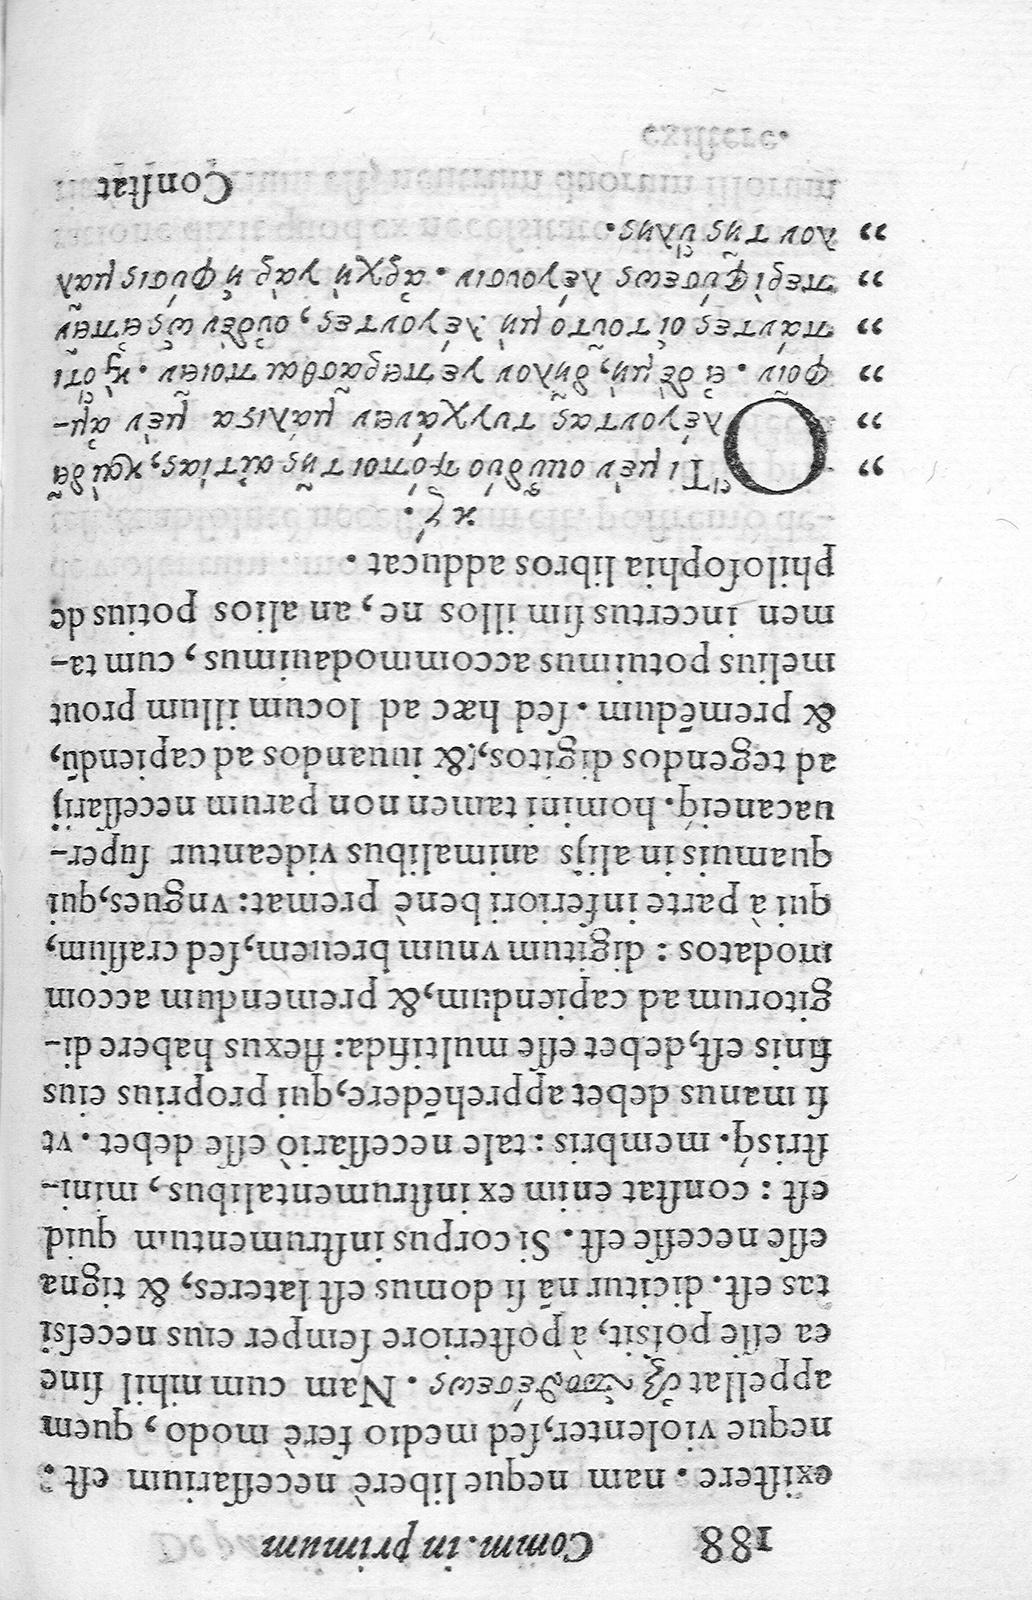 188 Comm. in primum
existere. nam neque liberè necessarium est:
neque violenter, sed medio ferè modo, quem
appellat ἐξ ὑποθέσεως. Nam cum nihil sine
ea esse possit, à posteriore semper eius necessi
tas est. dicitur nā si domus est lateres, & tigna
esse necesse est. Si corpus instrumentum quid
est: constat enim ex instrumentalibus, mini-
strisq́. membris: tale necessariò esse debet. vt
si manus debet apprehēdere, qui proprius eius
finis est, debet esse multifida: flexus habere di-
gitorum ad capiendum, & premendum accom
modatos: digitum vnum breuem, sed crassum,
qui à parte inferiori benè premat: vngues, qui
quamuis in alijs animalibus videantur super-
uacaneiq́. homini tamen non parum necessarij
ad tegendos digitos, & iuuandos ad capiendū,
& premēdum. sed hæc ad locum illum prout
melius potuimus accommodauimus, cum ta-
men incertus sim illos ne, an alios potius de
philosophia libros adducat.
κζ.
„ Ὅτι μὲν οὖν δύο τρόποι τῆς αἰτίας, καὶ δεῖ
„ λέγοντας τυγχάνειν μάλιστα μὲν ἀμ-
„ φοῖν. εἰ δὲ μὴ, δῆλον γε πειρᾶσθαι ποιεῖν. καὶ ὅτι
„ πάντες οἱ τοῦτο μὴ λέγοντες, οὐδὲν ὡς εἰπεῖν
„ περὶ φύσεως λέγουσιν. ἀρχὴ γὰρ ἡ φύσις μᾶλ
„ λον τῆς ὕλης.
Constat